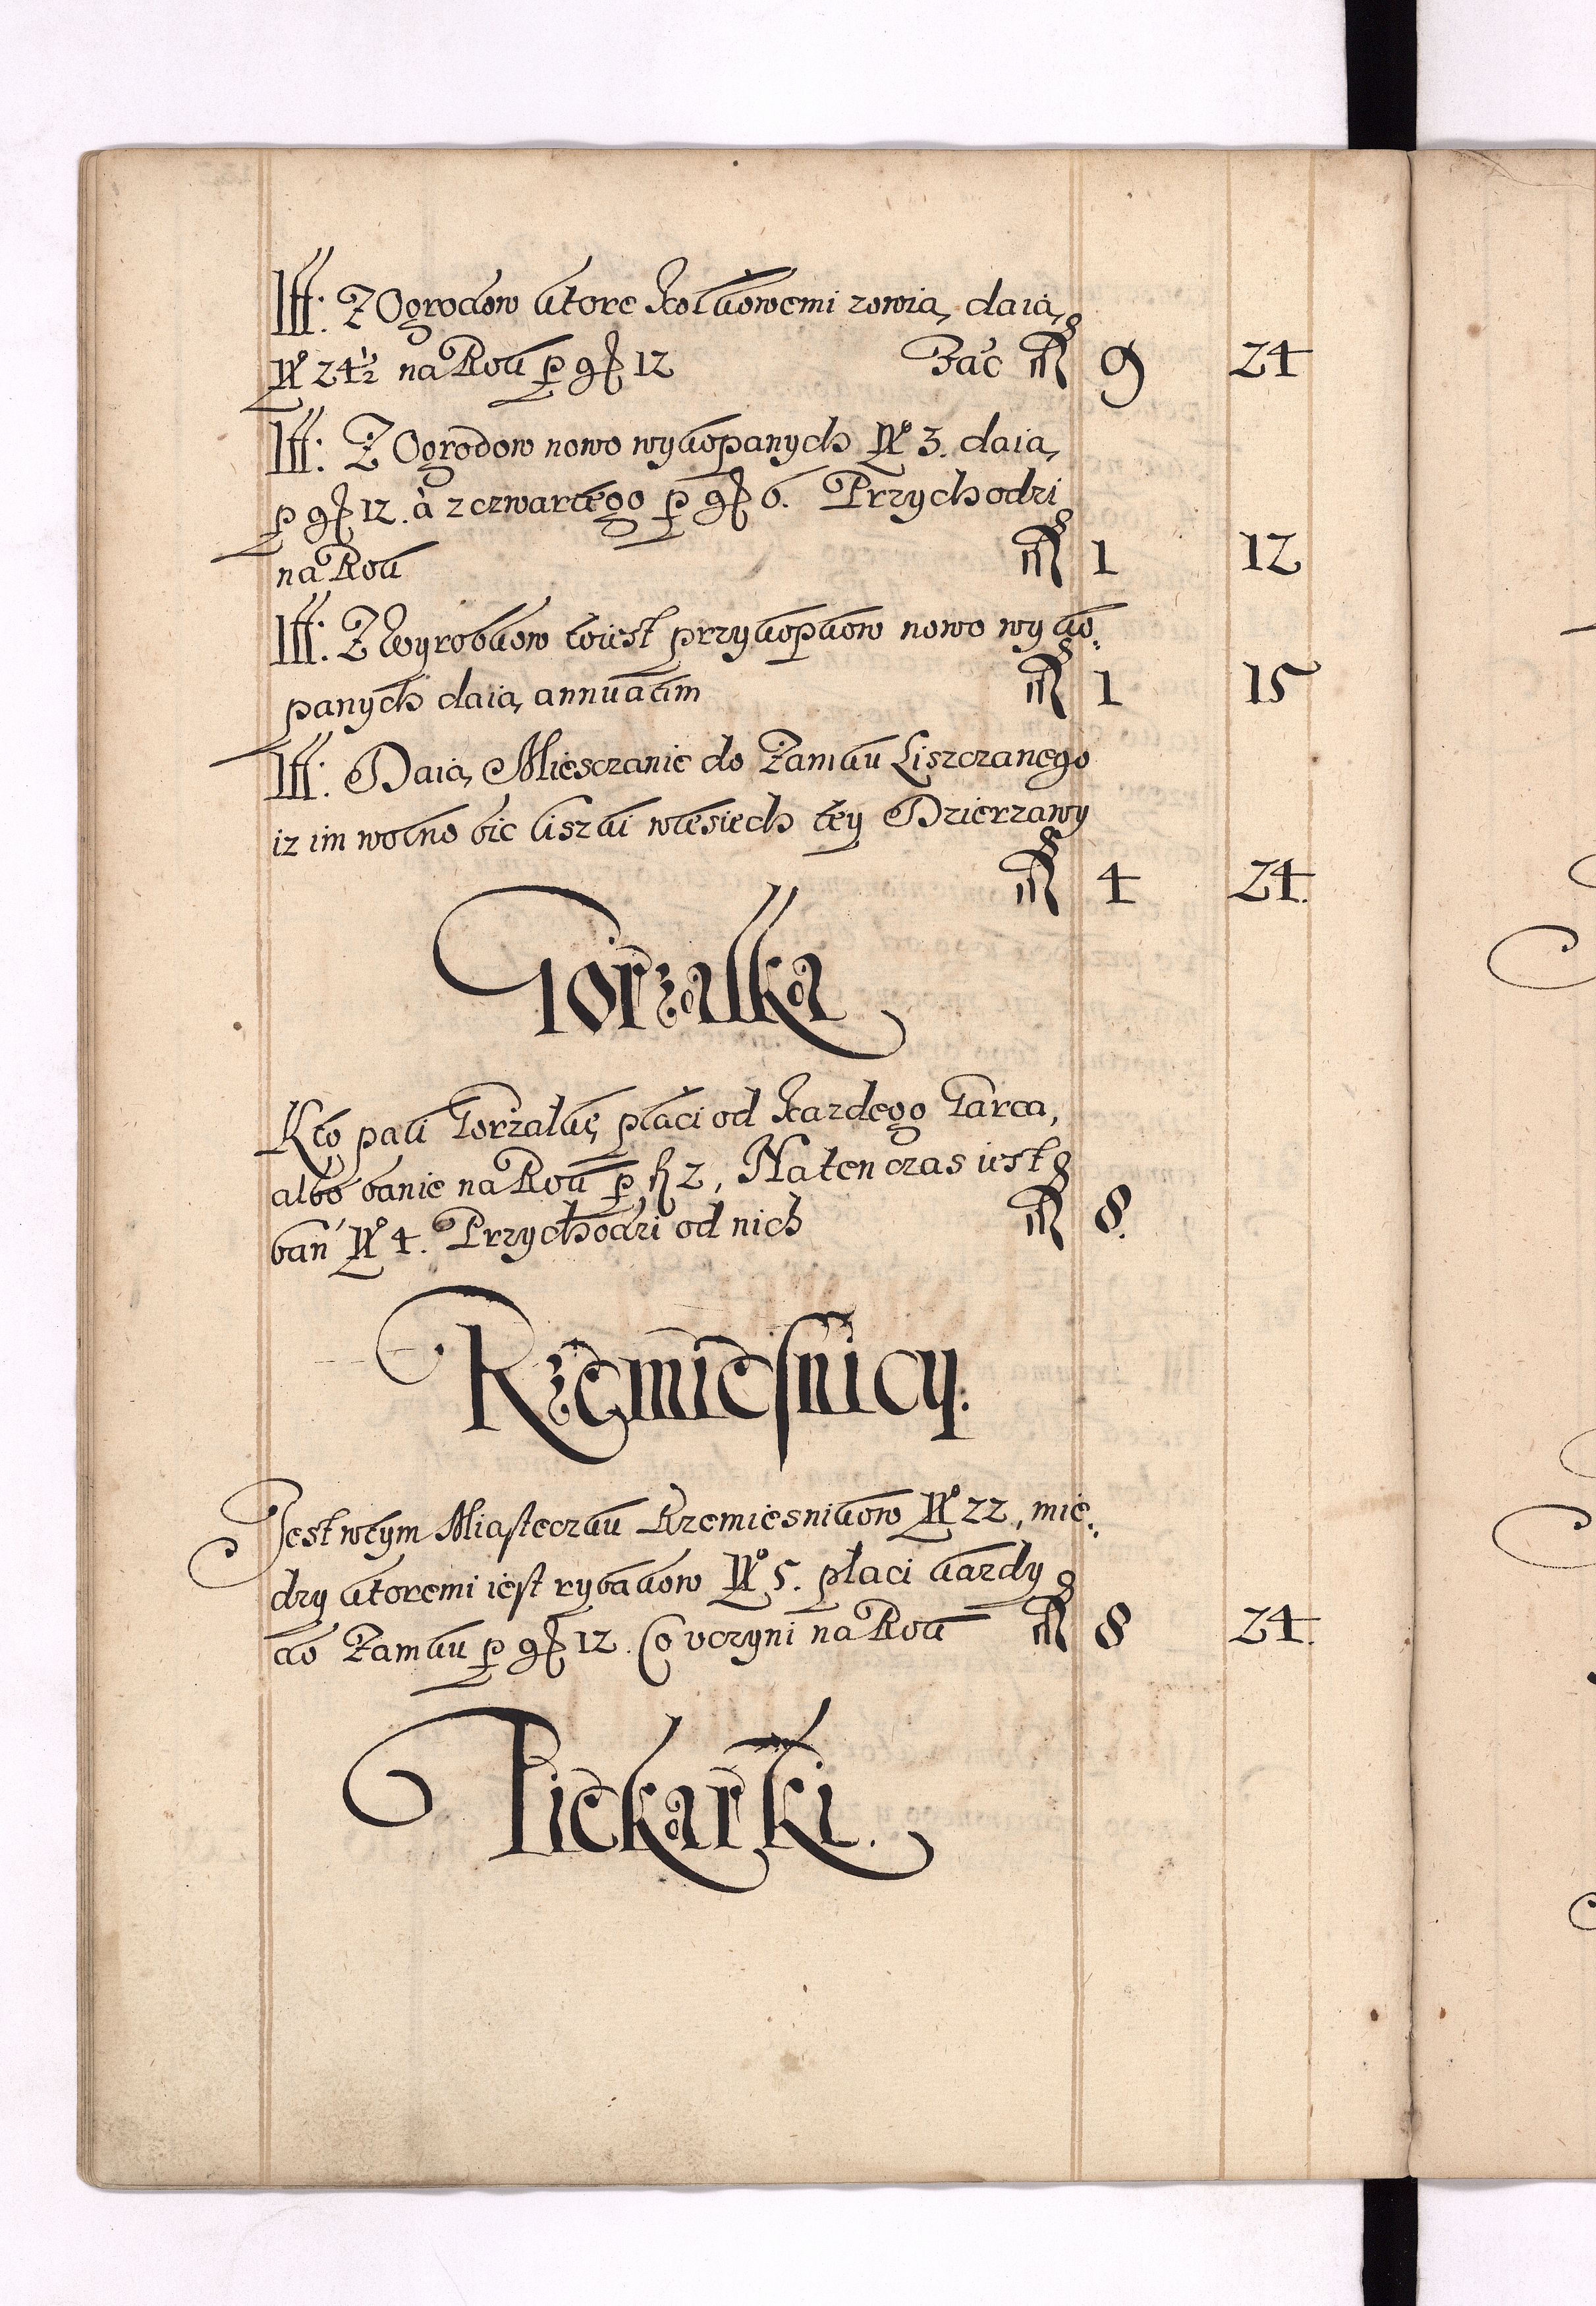 Itt: Z Ogrodow ktore Kołkowemi zowią, daią,
No 24½ na Rok p gr 12 Fac fl 9 24
Itt: Z Ogrodow nowo wykopanych No 3. daią,
p gr 12. à z czwartego p gr 6. Przychodzi
na Rok fl 1 12
Itt: Z Wyrobkow to iest przykopkow nowo wyko:
panych daią, annuatim fl 1 15
Itt: Daią, Miesczanie do Zamku Liszczanego
iz im wolno bić liszki w lesiech tey Dzierzawy
fl 4 24.
Gorzałka
Kto pali Gorzałkę, płaci od Kazdego Garca,
albo banie na Rok p fl 2, Na ten czas iest
bań No 4. Przychodzi od nich fl 8.
Rzemiesnicy.
Jest w tym Miasteczku Rzemiesnikow No 22, mię:
dzy ktoremi iest rybakow No 5. płaci kazdy
do Zamku p gr 12. Co uczyni na Rok fl 8 24.
Piekarki.